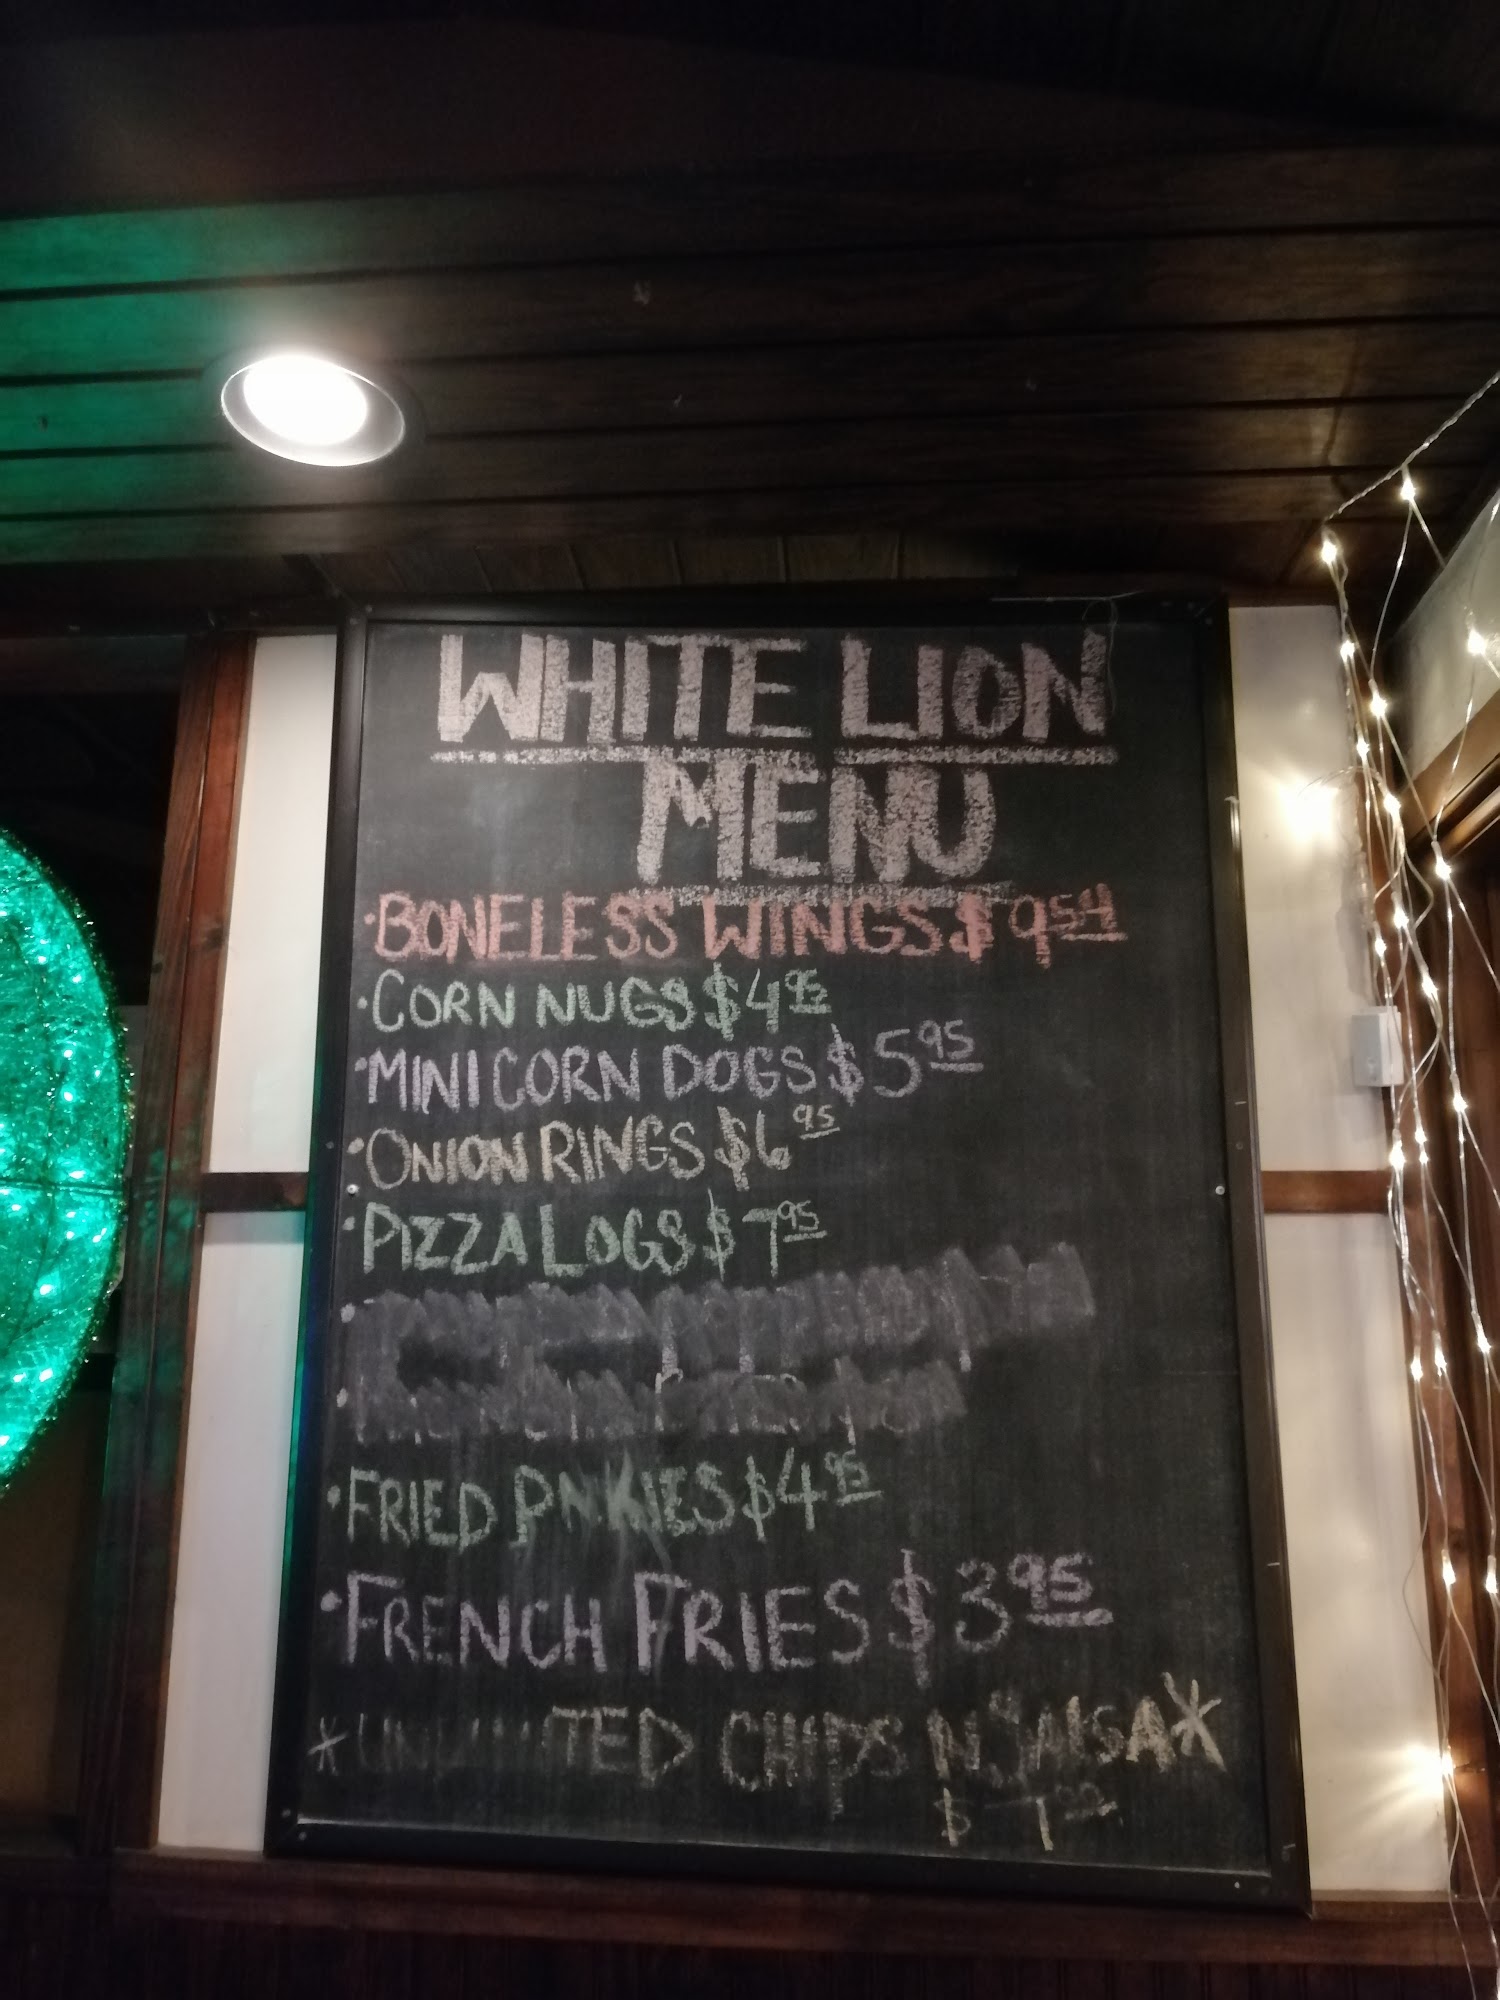 WHITE LION
MENU
·BONELESS WINGS $9.54
·CORN NUGS $4.95
·MINI CORN DOGS $5.95
·ONION RINGS $6.95
·PIZZA LOGS $7.95
·FRIED PICKLES $4.95
·FRENCH FRIES $3.95
*UNLIMITED CHIPS N SALSA*
$7.00